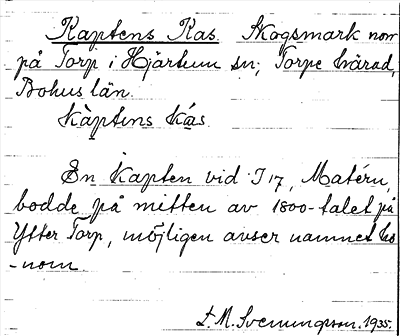 Kaptens Kas. Skogsmark norr
på Torp i Hjärtum sn; Torpe härad,
Bohus län.
Kàptens Kás.
En Kapten vid I 17, Matérn,
bodde på mitten av 1800-talet på
Ytter Torp, möjligen avser namnet ho-
-nom
L. M. Svenungson. 1935.